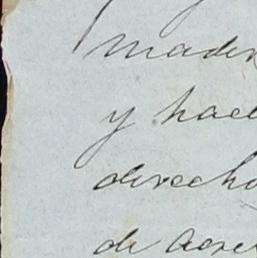 made
y hace
derecho
de acre